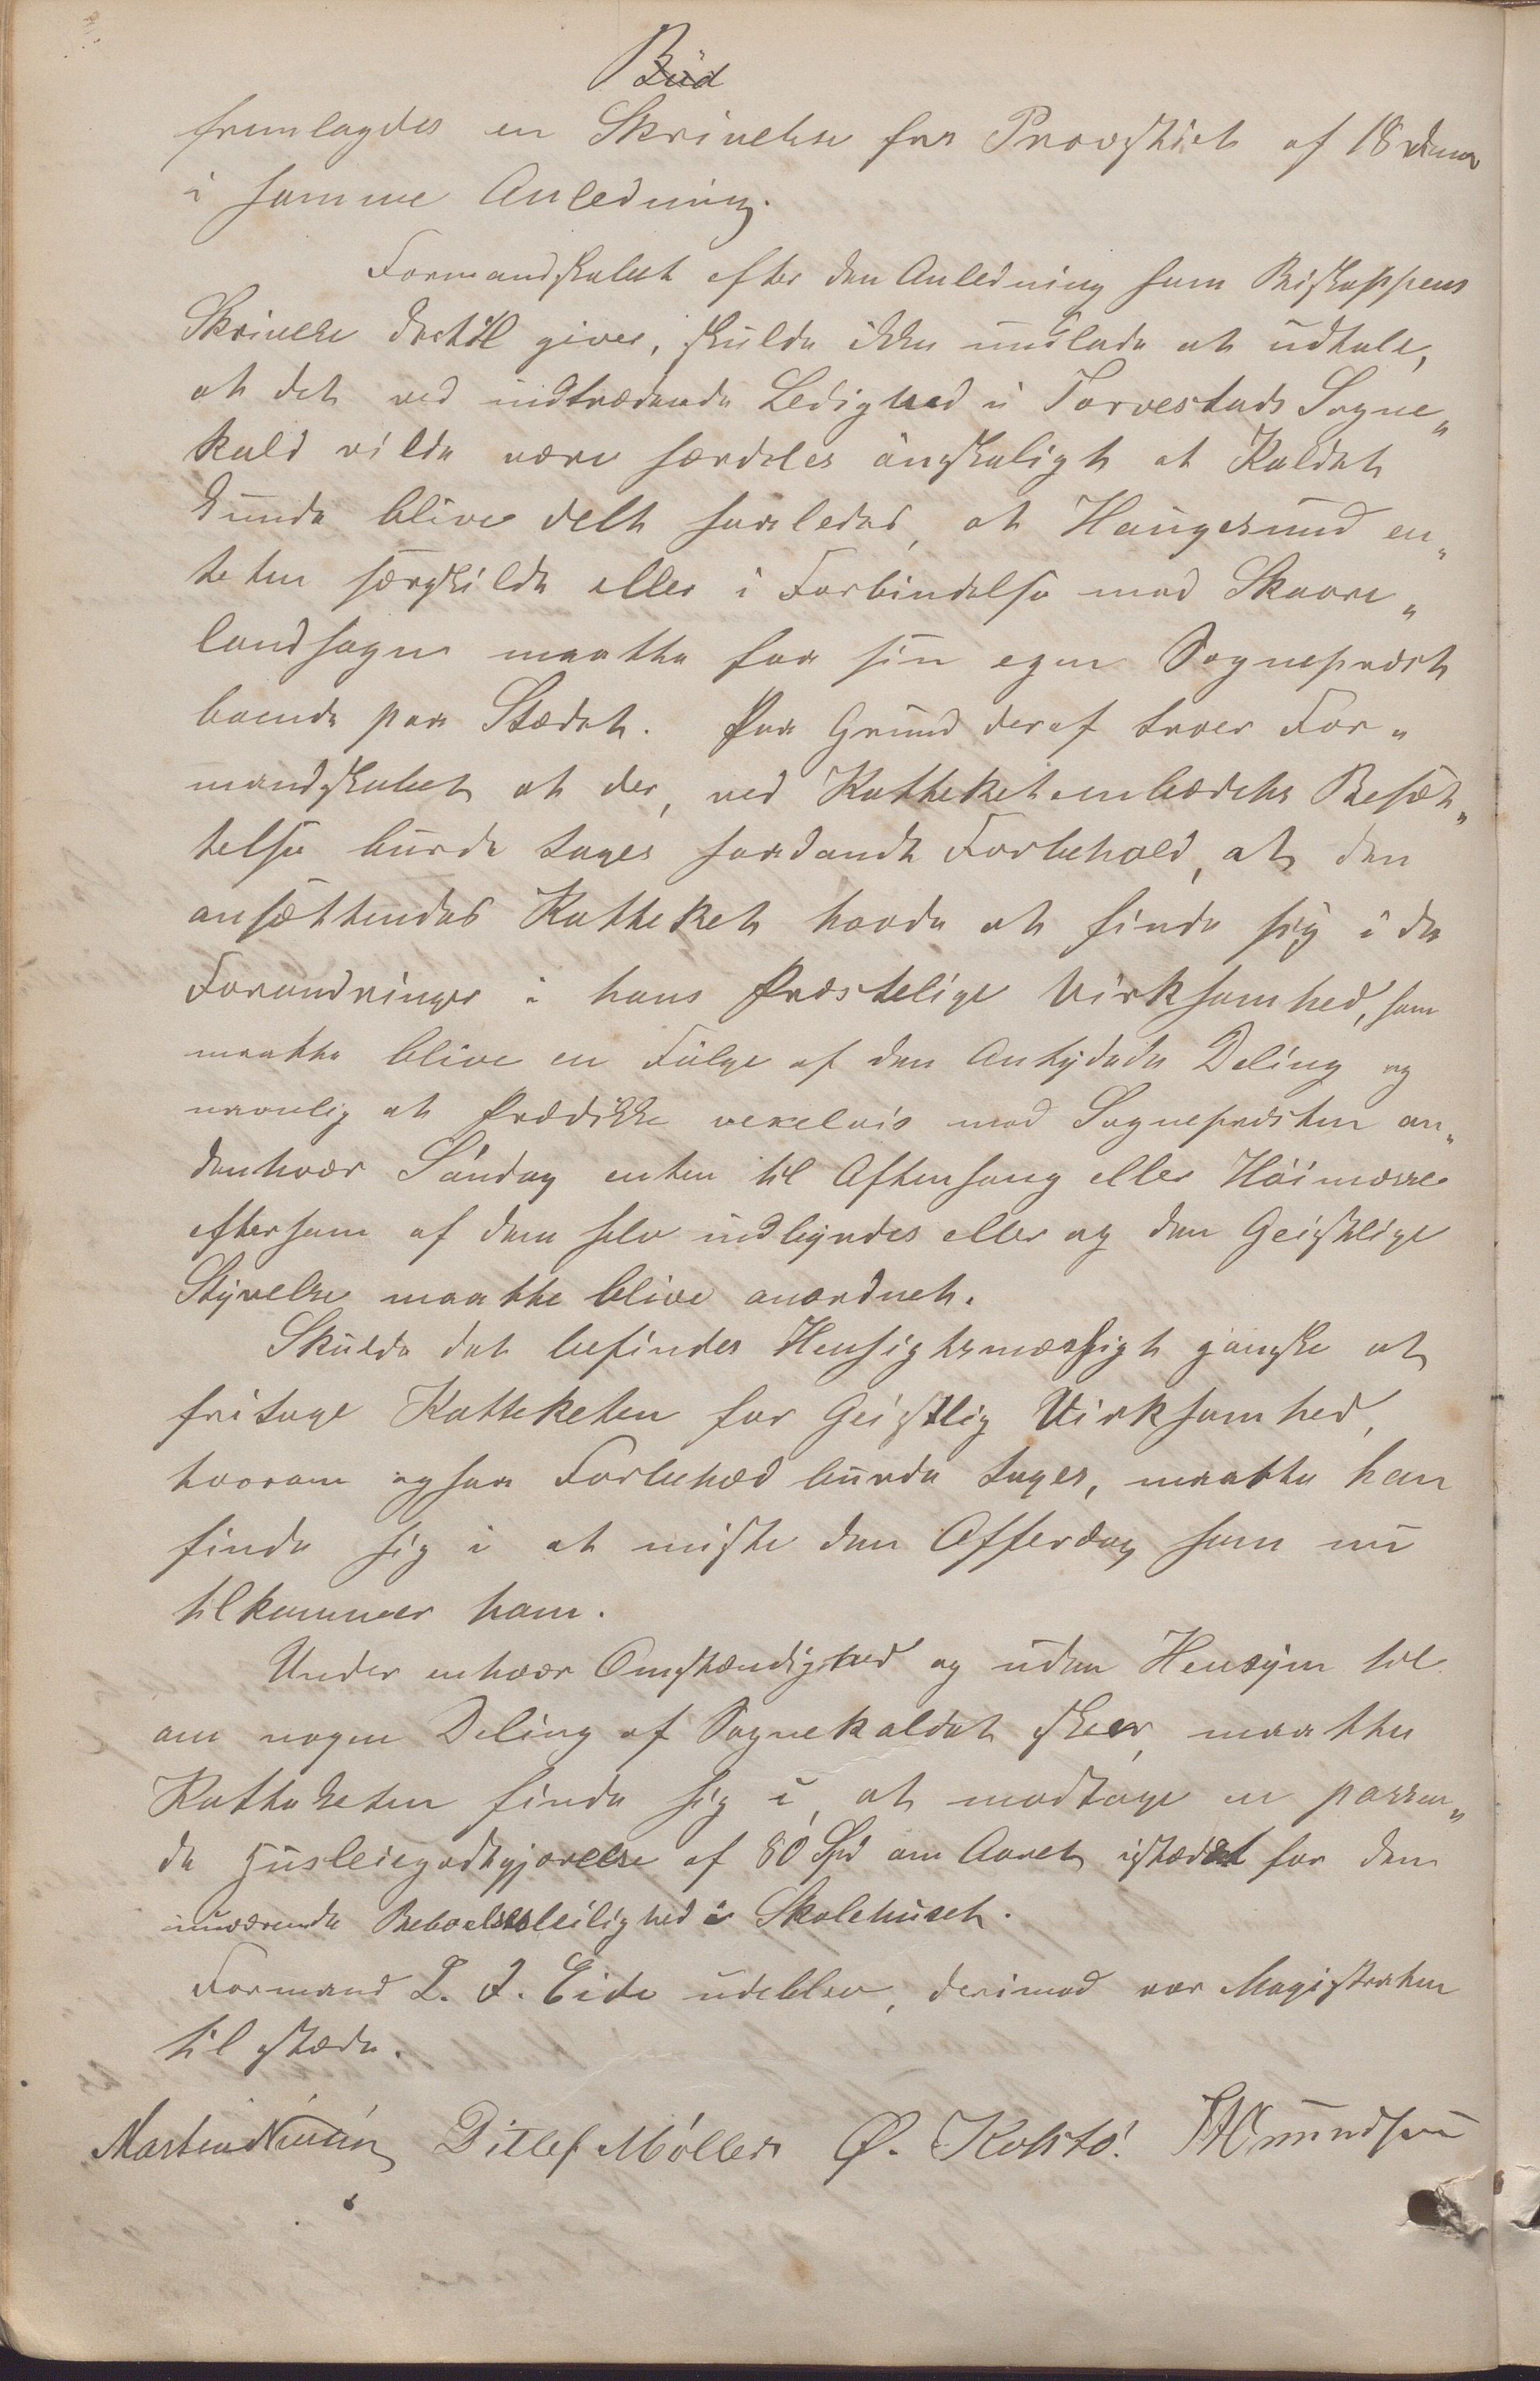 Bud
fremlagdes en Skrivelse fra Provstiet af 18 dennes
i samme Anledning.
Formandskabet efter den Anledning som Biskoppens
Skrivelse dertil giver, skulde ikke undlade at udtale,
at det ved indtrædende Ledighed i Torvestads Sogne„
kald vilde være særdeles ønskeligt at Kaldet
kunde blive delt saaledes, at Haugesund en„
teten særskildt eller i Forbindelse med Skaare„
landsogn maatte faa sin egen Sogneprest
boende paa Stædet. Paa Grund deraf troer For„
mandskabet at der, ved Katheketembedets Besæt„
telse burde tages saadandt Forbehold, at den
ansættendes Katheket havde at finde sig i de
Forandringer i hans Præstelige Virksomhed, som
maatte blive en Følge af den Antydede Deling og
navnlig at Prædikke vexelvis med Sognepresten an„
denhvær Søndag enten til Aftensang eller Høimesse
eftersom af dem selv indbyrdes eller og den Geistlige
Styrelse maatte blive anordnet.
Skulde det befindes Hensigtsmæssigt ganske at
fritage Katteketen for Geistlig Virksomhed,
hvorom ogsaa Forbehod burde tages, maatte han
finde sig i at miste den Offerdag som nu
tilkommer ham.
Under enhvær Omstændighed og uden Hensyn til
om nogen Deling af Sognekaldet skeer, maatte
Katteketen finde sig i, at modtage en passen„
de Husleiegodtgjørelse af 80 Spd om Aaret istædet for den
nuværende Beboelsesleilighed i Skolehuset.
Formand L. J. Eide udeblev, derimod var Magistraten
til stæde.
Martin Nilsen Ditlef Møller Ø. Kolstø. Amundsen